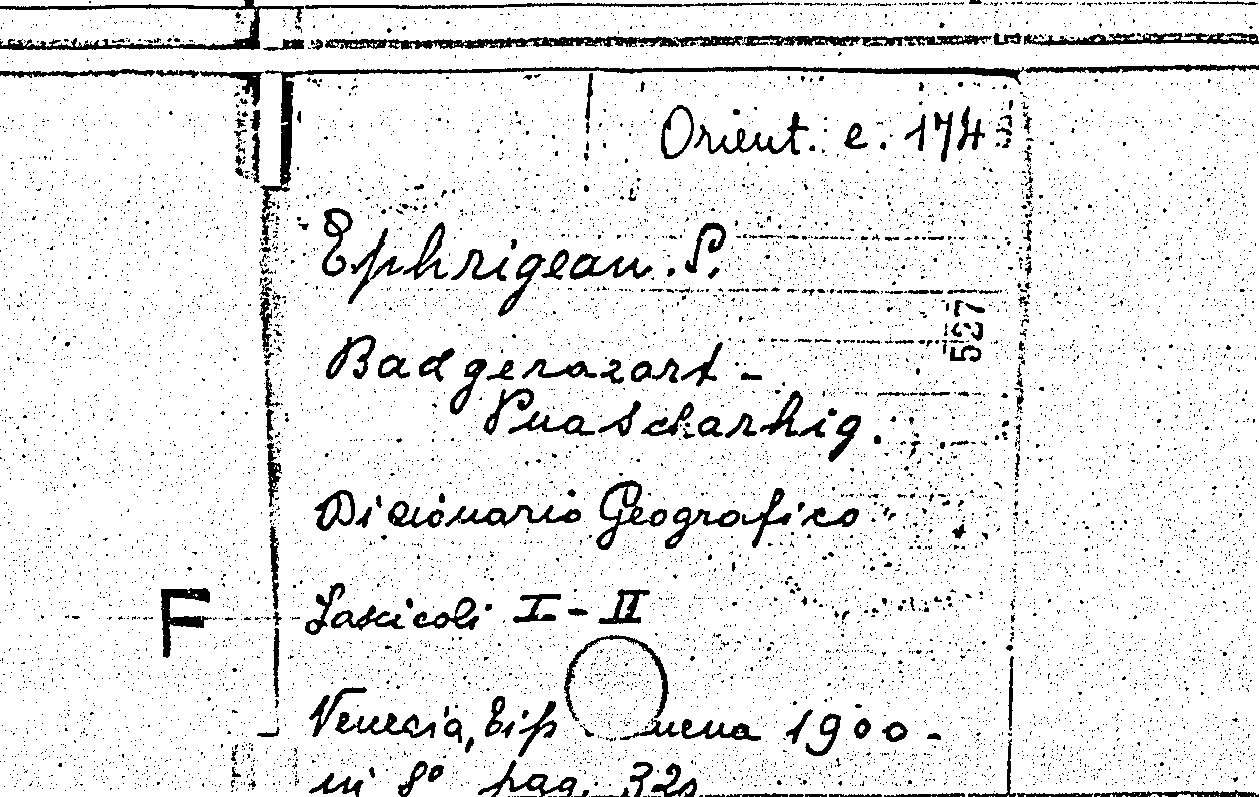 Orient. e. 174
Ephrigean. S.
587
Badgerazart -
Pnascharhig.
Dizionario Geografico
Fascicoli I - II
F
Venezia, Tip mena 1900 -
in 8° pag. 320